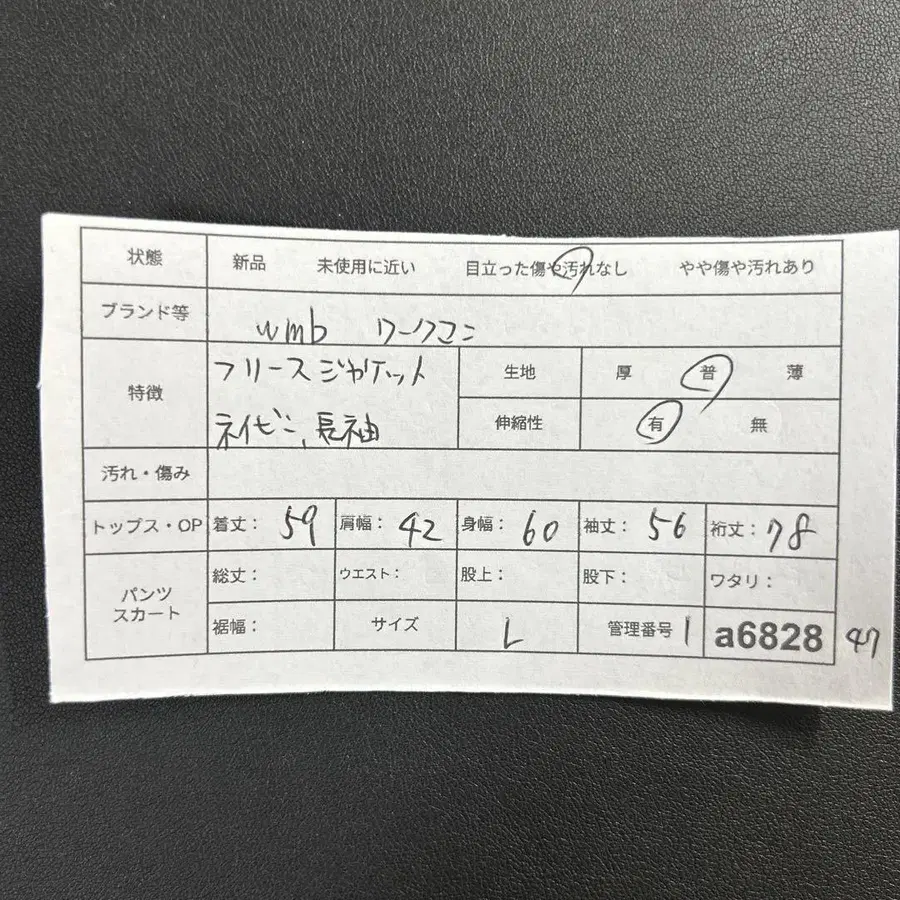 状態 新品 未使用に近い 目立った傷や汚れなし やや傷や汚れあり
ブランド等 wmb ワークマン
特徴 フリースジャケット 生地 厚 普 薄
ネイビー、長袖 伸縮性 有 無
汚れ・傷み
トップス・OP 着丈: 59 肩幅: 42 身幅: 60 袖丈: 56 裄丈: 78
パンツ スカート 総丈: ウエスト: 股上: 股下: ワタリ:
裾幅: サイズ L 管理番号 1 a6828 47